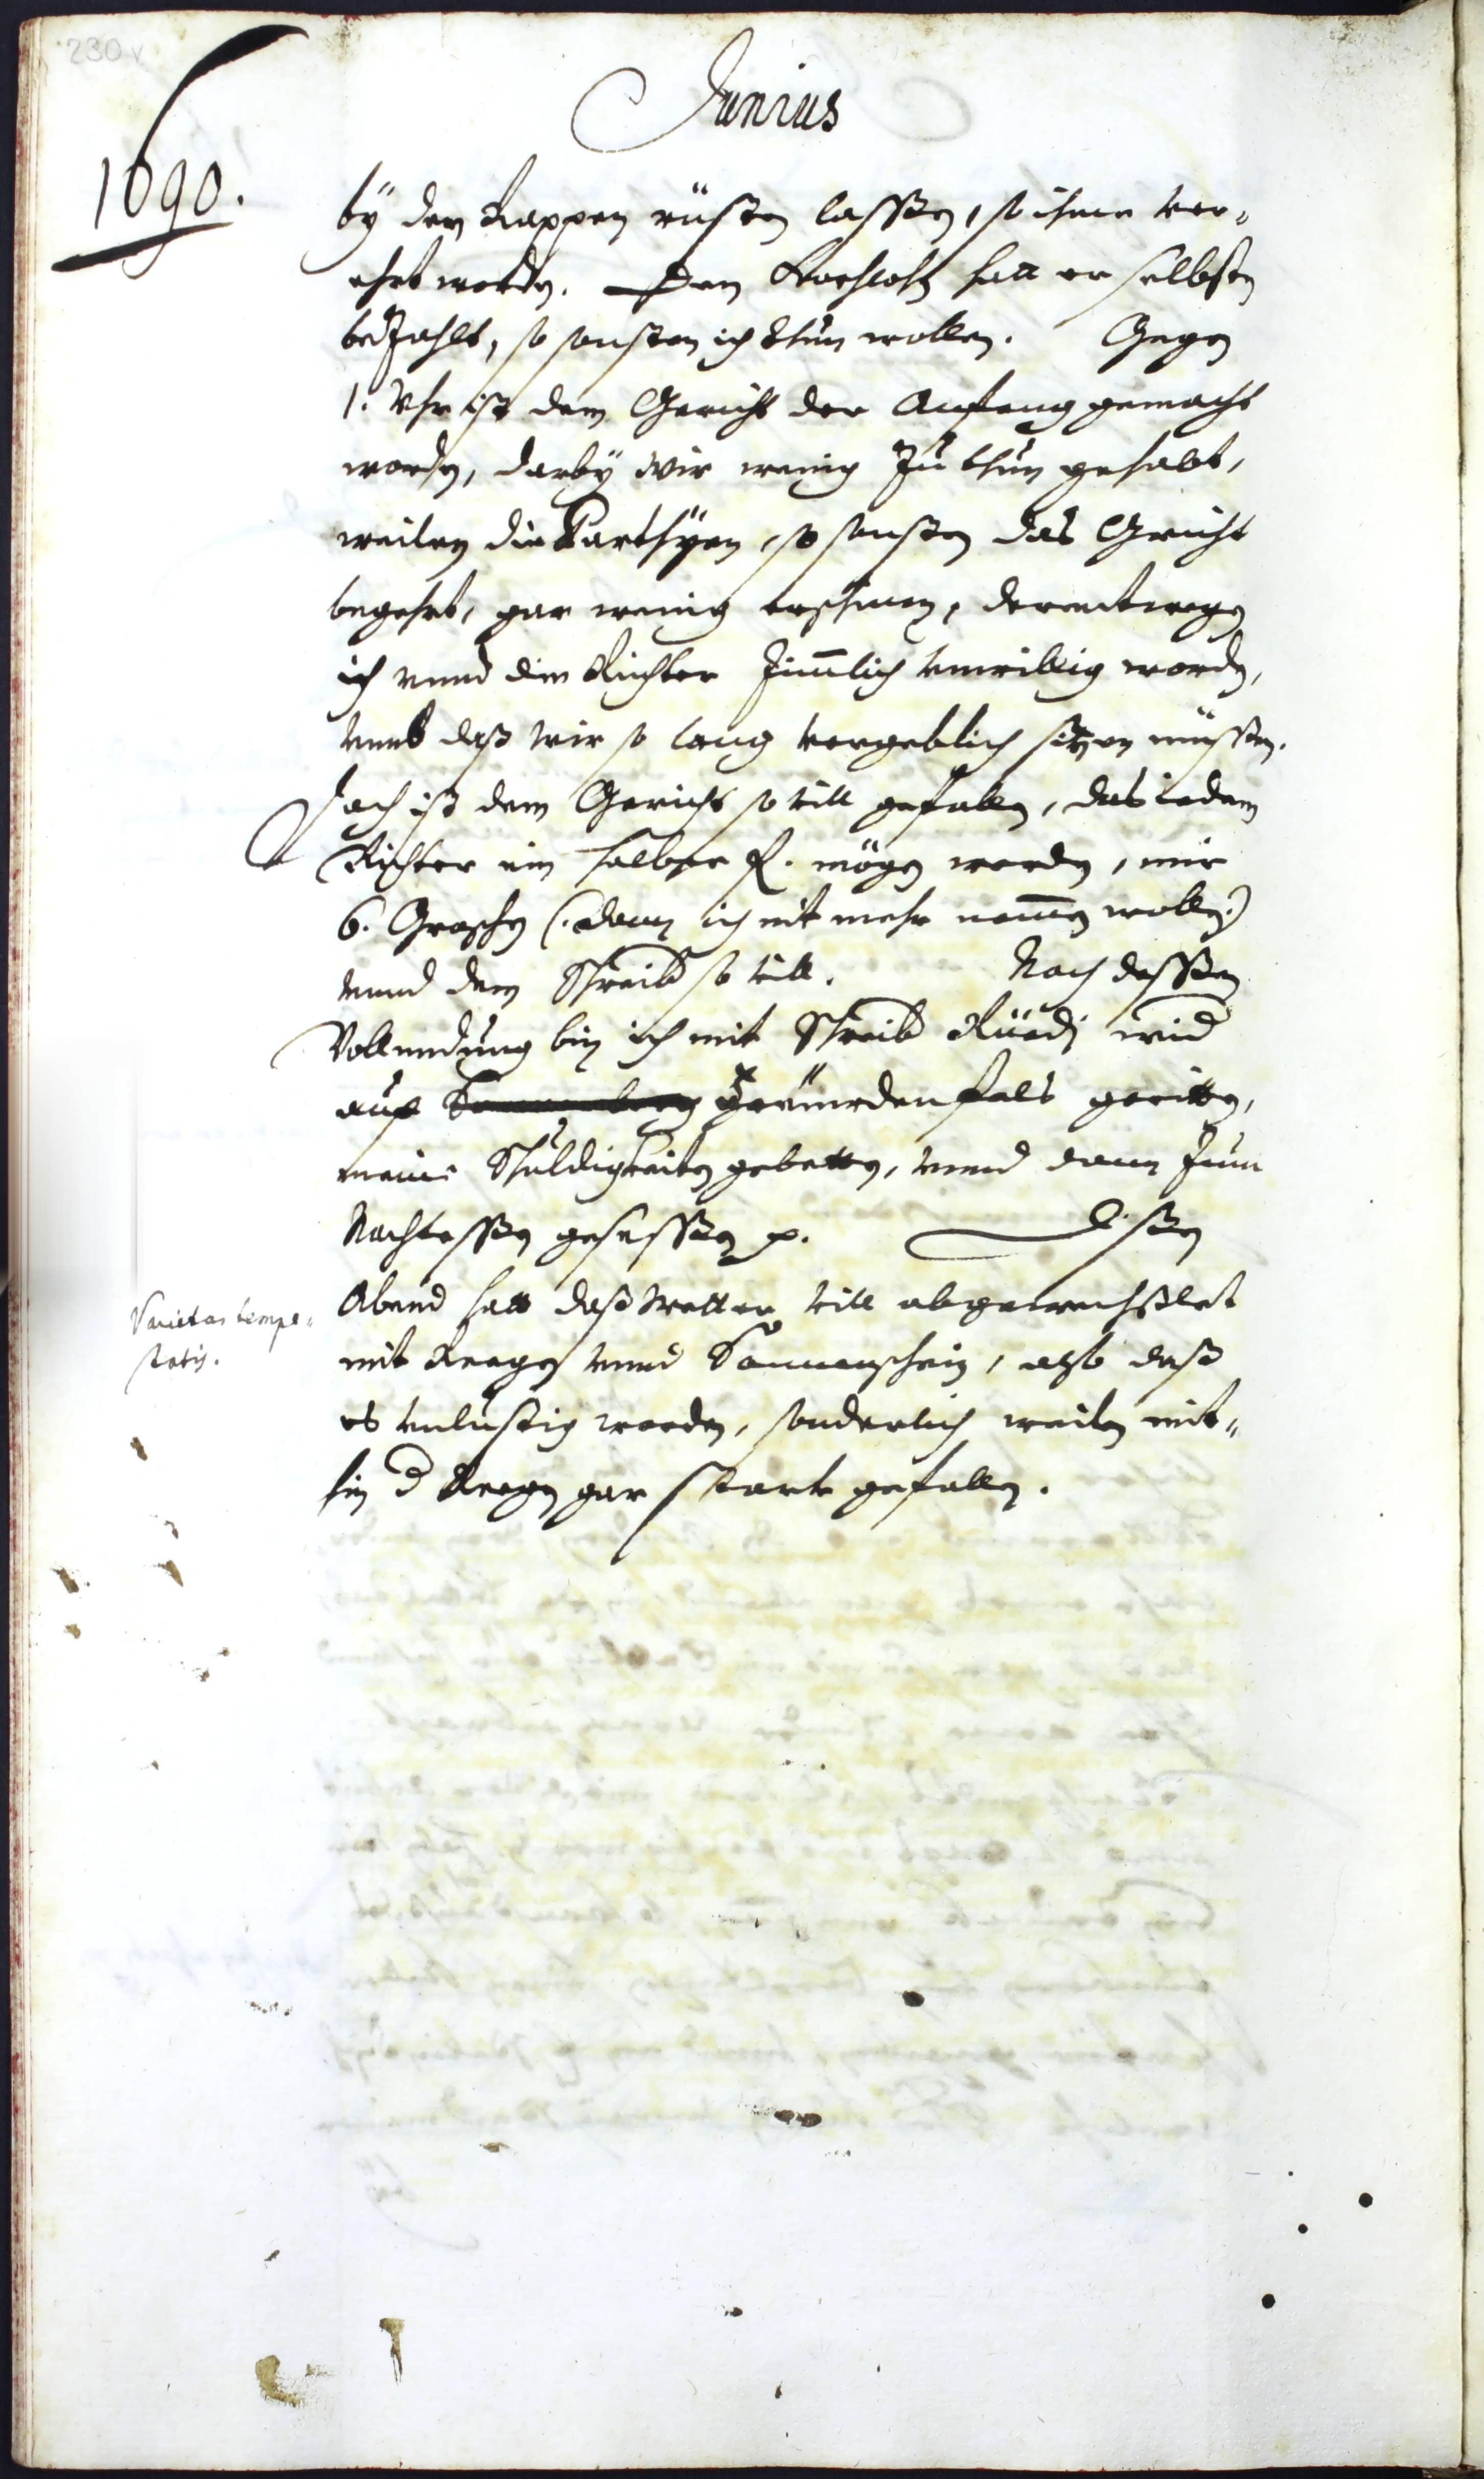 230v
Junius
1690.
bÿ dem Rappen rüsten lassen, so ihme ver„
ehrt worden. Den Kochlohn hatt er selbsten
bezahlt, so sonsten ich thun wollen. Gegen
1. Uhr ist dem Gericht der Anfang gemacht
worden, darbÿ wir wenig zu thun gehabt,
weilen die Parthÿen, so sonsten das Gericht
begehrt, gar wenig erschinen, derentwegen
ich vnnd die Richter zimlich vnwillig worden,
vmb daß wir so lang vergeblich sitzen müssen.
Doch ist dem Gericht so vill gefallen, das iedem
Richter ein halber fl. mögen werden, mir
6. Groschen (: dann ich nit mehr nemmen wollen :)
vnnd dem Schreiber so vill. Nach dessen
Vollendung bin ich mit Schreiber Rüedi wider
auf geritten,
meine Schuldigkeiten gebetten, vnnd dann zum
Nachtessen gesessen p. Disen
Varietas tempe„
statis.
Abend hatt daß Wetter vill abgewechßlet
mit Reegen vnnd Sonnenschein, also daß
es vnlustig worden, sonderlich weilen mit„
hin d Reegen gar starck gefallen.